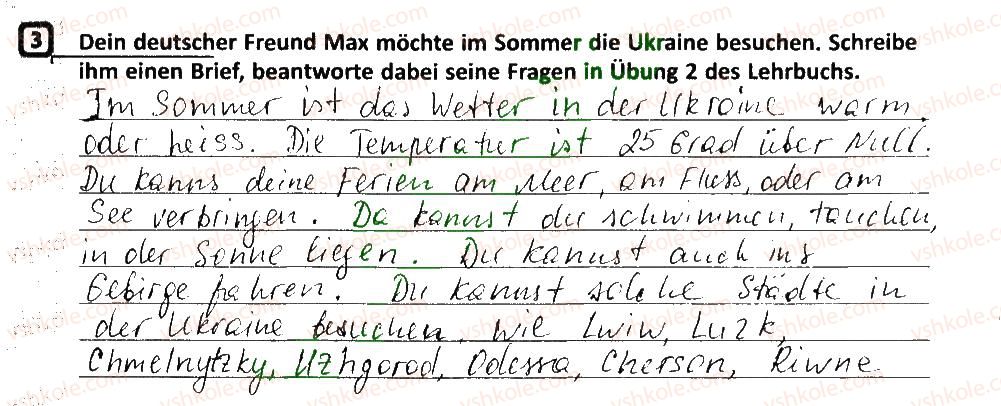 3 Dein deutscher Freund Max möchte im Sommer die Ukraine besuchen. Schreibe
ihm einen Brief, beantworte dabei seine Fragen in Übung 2 des Lehrbuchs.
Im Sommer ist das Wetter in der Ukraine warm
oder heiss. Die Temperatur ist 25 Grad über Null.
Du kanns deine Ferien am Meer, am Fluss, oder am
See verbringen. Da kannst du schwimmen, tauchen,
in der Sonne liegen. Du kannst auch ins
Gebirge fahren. Du kannst solche Städte in
der Ukraine besuchen, wie Lwiw, Luzk,
Chmelnytzky, Uzhgorod, Odessa, Cherson, Riwne